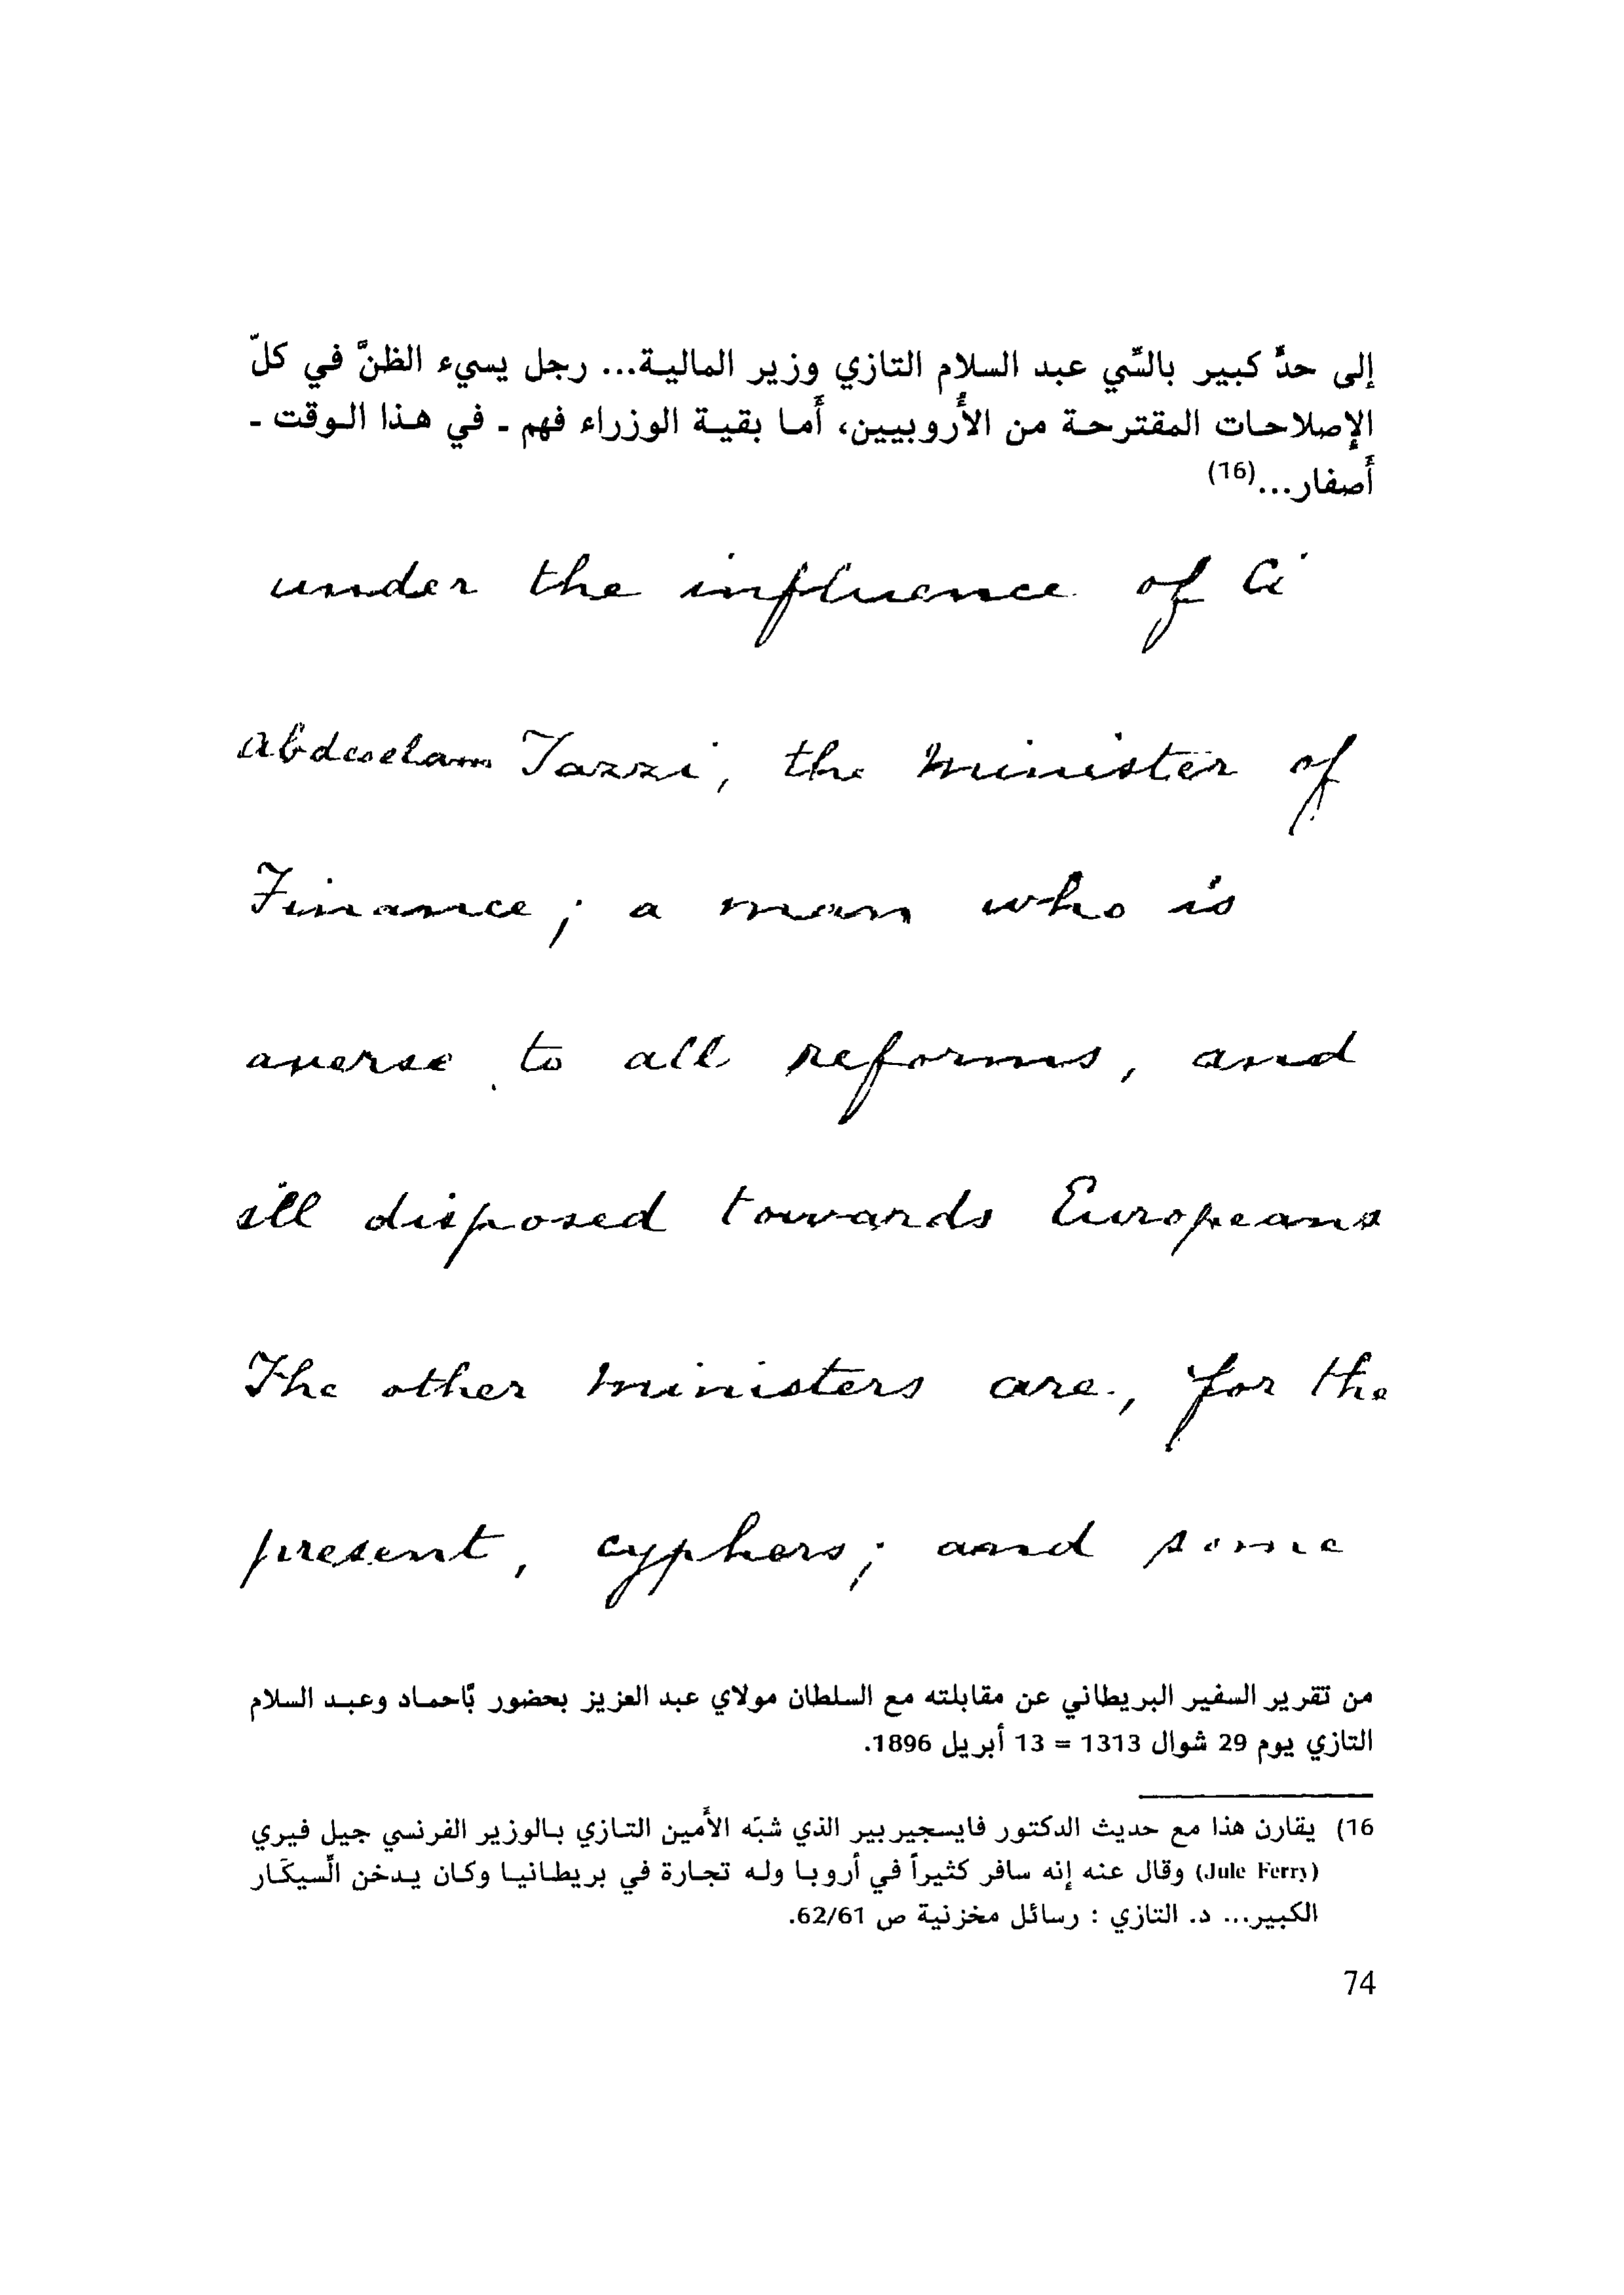 إلى حدٍّ كبير بالسِّي عبد السلام التازي وزير المالية... رجل يسيء الظنَّ في كلّ
الإصلاحات المقترحة من الأُروبيين، أَما بقية الوزراء فهم - في هذا الوقت -
أَصفار...(16)
under the influence of
Abdeselam Tazzi, the Minister of
Finance; a man who is
averse to all reforms, and
ill disposed towards Europeans
The other Ministers are, for the
present, cyphers; and some
من تقرير السفير البريطاني عن مقابلته مع السلطان مولاي عبد العزيز بحضور بّاحماد وعبد السلام
التازي يوم 29 شوال 1313 = 13 أبريل 1896.
16) يقارن هذا مع حديث الدكتور فايسجيربير الذي شبّه الأَمين التازي بالوزير الفرنسي جيل فيري
(Jule Ferry) وقال عنه إنه سافر كثيراً في أروبا وله تجارة في بريطانيا وكان يدخن السيكَار
الكبير... د. التازي : رسائل مخزنية ص 62/61.
74